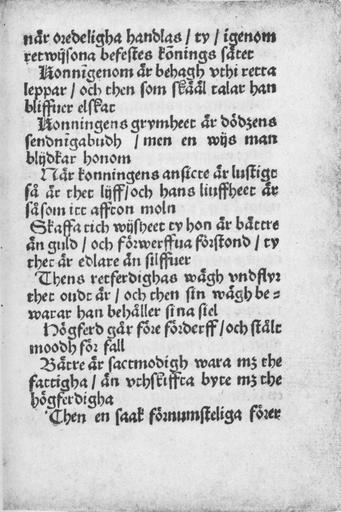 när oredeligha handlas / ty / igenom
retwijsona befestes kõnings sätet
Konnigenom är behagh vthi retta
leppar / och then som skääl talar han
bliffuer elskat
Konningens grymheet är dödzens
sendnigabudh / men en wijs man
blijdkar honom
När konningens ansicte är lustigt
så är thet lijff/och hans liuffheet är
såsom itt affton moln
Skaffa tich wijsheet ty hon är bättre
än guld / och förwerffua förstond / ty
thet är edlare än silffuer
Thens retferdighas wägh vndflyr
thet ondt är / och then sin wägh be=
warar han behåller sina siel
Högferd går före förderff /och stält
moodh för fall
Bätre är sactmodigh wara mz the
fattigha / än vthskiffta byte mz the
högferdigha
Then en saak förnumsteliga förer